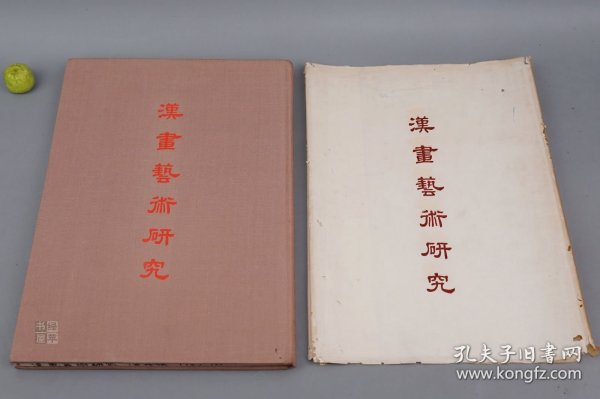 漢畫藝術研究
漢畫藝術研究
孔夫子旧书网
www.kongfz.com